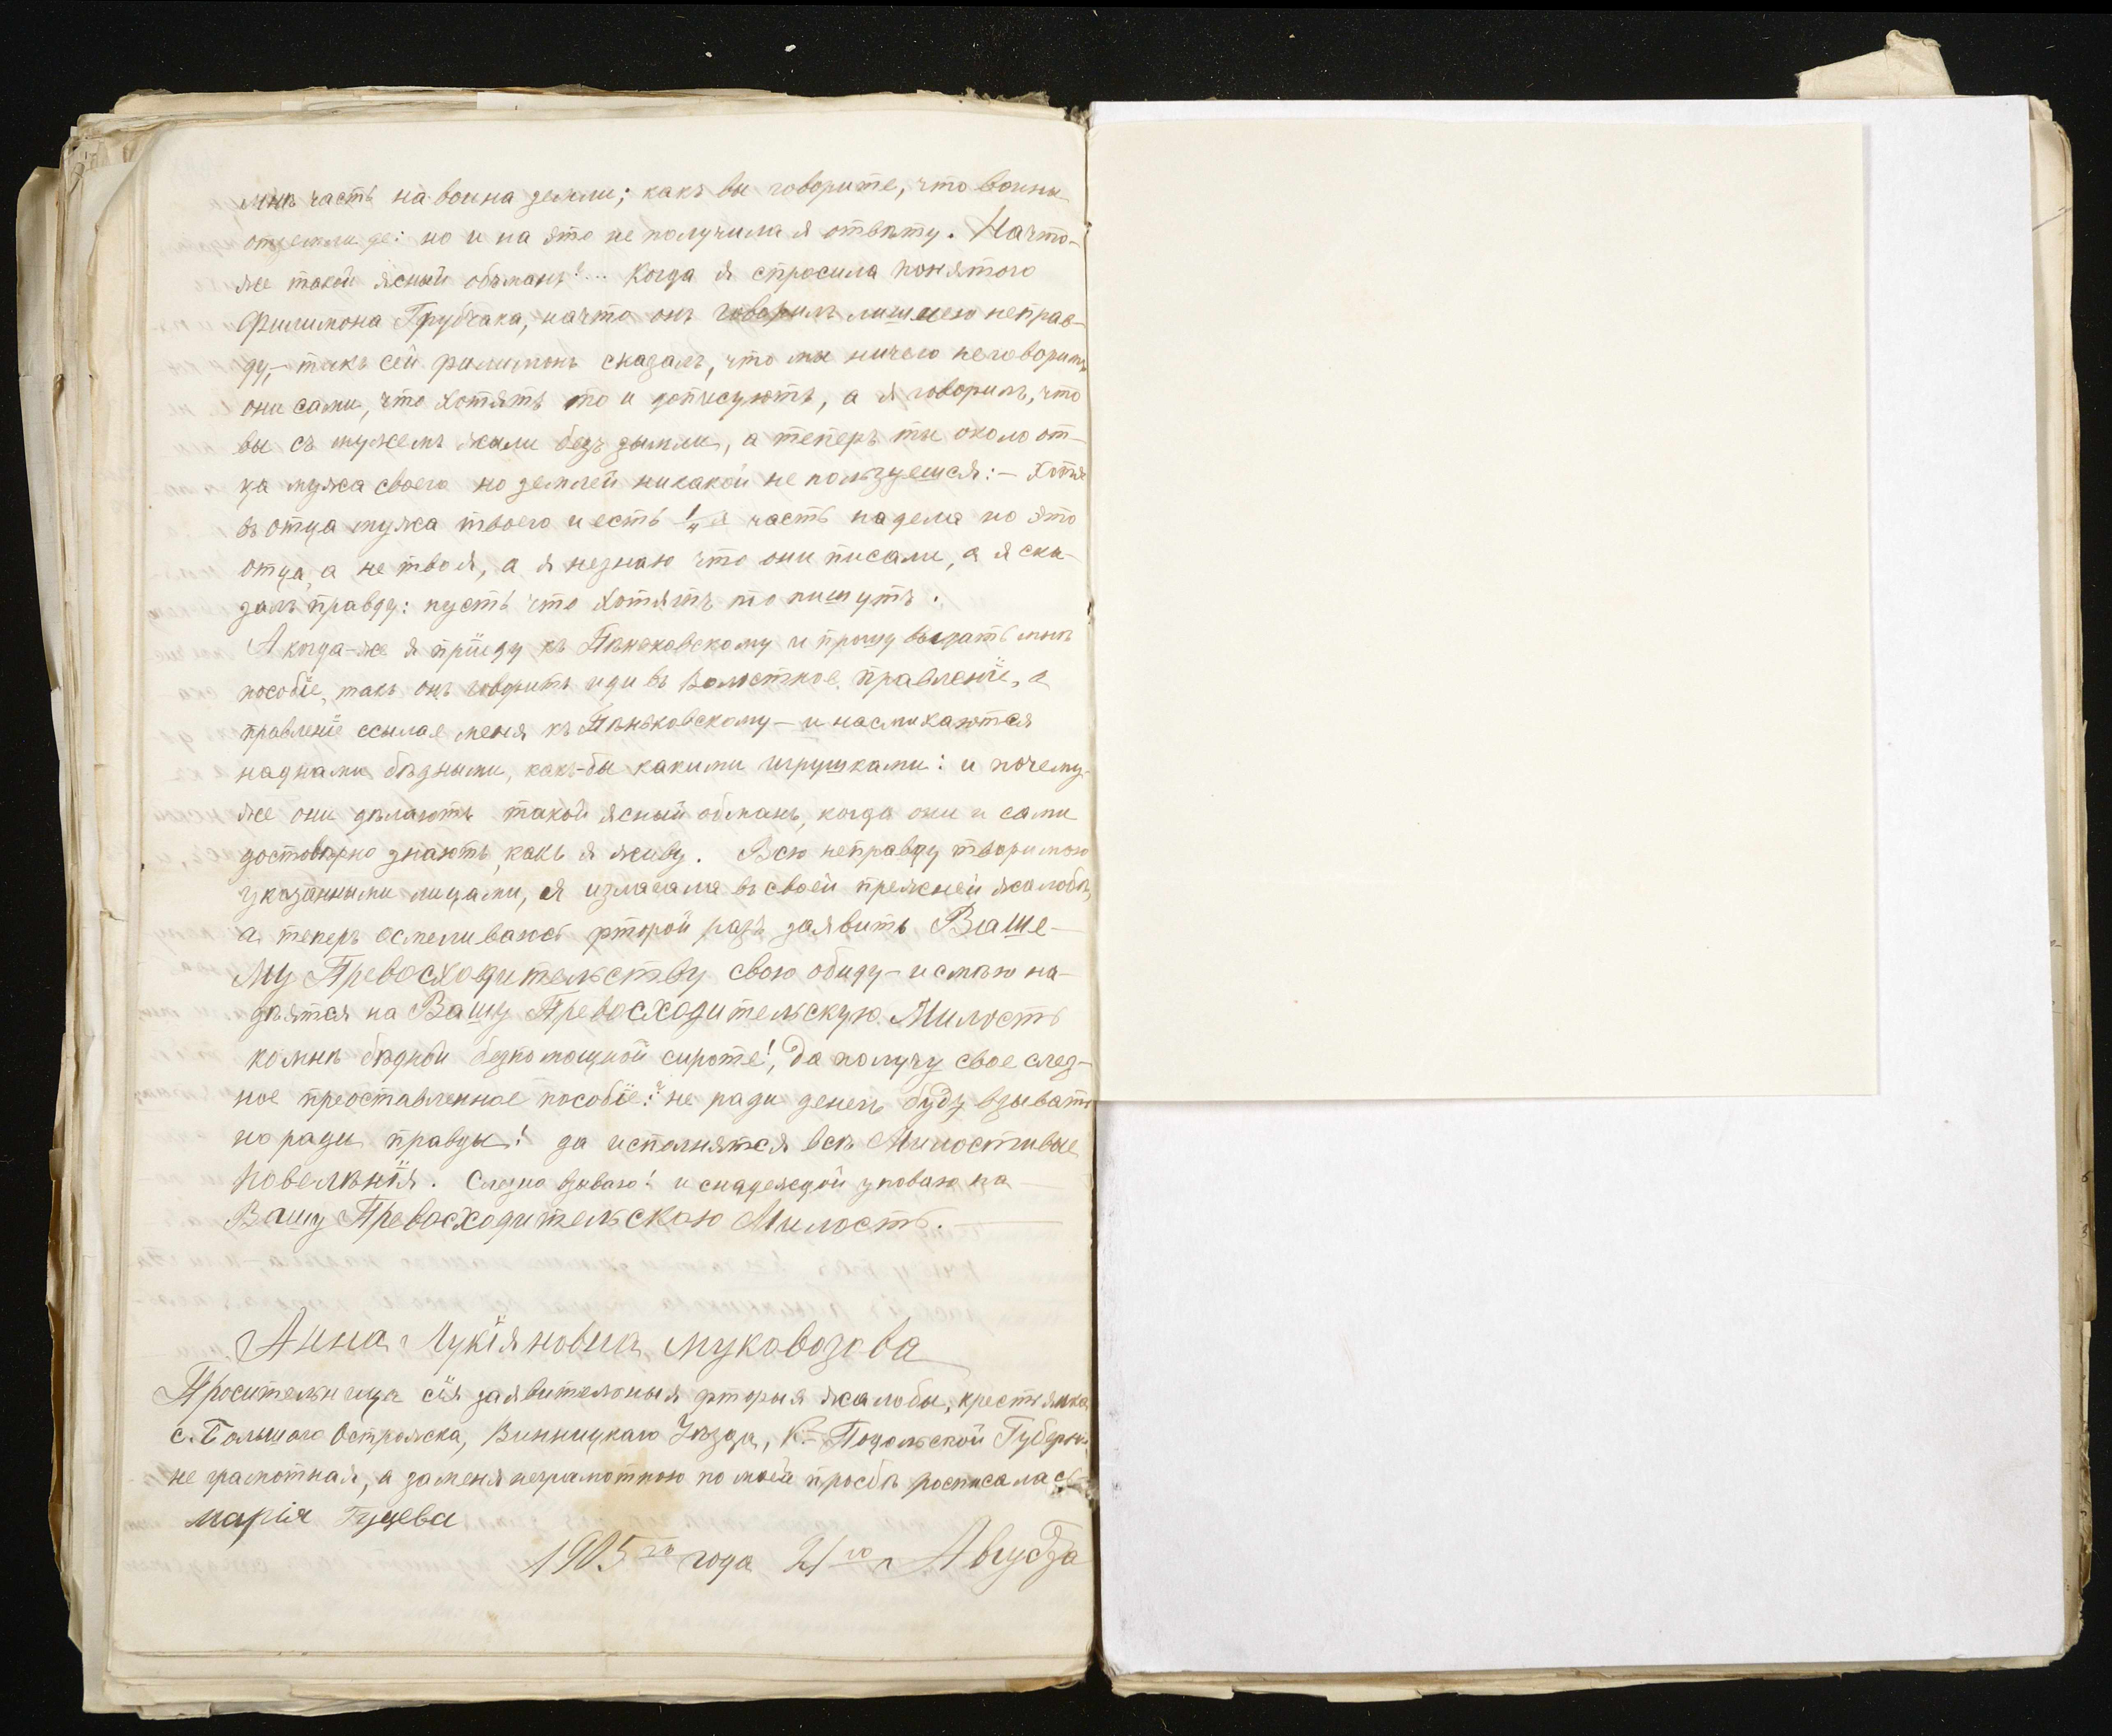 мнѣ часть на воина земли; какъ вы говорите, что воины
отземли де: но и на ято не получила я отвѣту. Начто-
же такой ясный обманъ!... Когда я спросила понятого
Филимона Грубчака, начто онъ говорилъ лишнею неправ-
ду,- такъ сей Филимонъ сказалъ, что мы ничего неговорили
они сами, что хотятъ то и дописуютъ, а я говорилъ, что
вы съ мужемъ жили безъ зымли, а теперъ ты около от-
ца мужа своего но землей никакой не пользуешся:- Хотя
въ отца мужа твоего и есть 1/4 я часть надела но ято
отца, а не твоя, а я незнаю что они писали, а я ска-
залъ правду: пусть что хотятъ то пишутъ.
А когда-же я прїиду къ Пѣньковскому и прошу выдать мнѣ
пособїе, такъ онъ говоритъ иди въ Волостное правленїе, а
правленїе ссылае меня къ Пѣньковскому - и насмихаются
наднами бѣдными, какъ-бы какими игрушками: и почему-
же они дѣлаютъ такой ясный обманъ, когда они и сами
достовѣрно знаютъ, какъ я живу. Всю неправду творимою
указанными лицами, я излагала въ своей прежней жалобѣ,
а теперъ осмеливаюсь фторой разъ заявить Ваше-
му Превосходительству свою обиду - и смѣю на-
дѣятся на Вашу Превосходительскую Милость
комнѣ бѣдной безпомощной сироте!, Да получу свое слез-
ное преоставленное пособїе: не ради денегъ буду взывать
но ради правды! да исполнятся всѣ Милостивые
повелѣнїя. Слезно взываю! и снадеждой уповаю на
Вашу Превосходительскою Милость.
Анна Лукїяновна Муковозова
Просительница сїя заявительныя фторыя жалобы, крестьянка
с. Большого Острожска, Винницкаго Уѣзда, К- Подольской Губерни
не грамотная, а заменя неграмотною по моей просбѣ росписалась
Марія Гуцева
1905 го года 21 го Августа